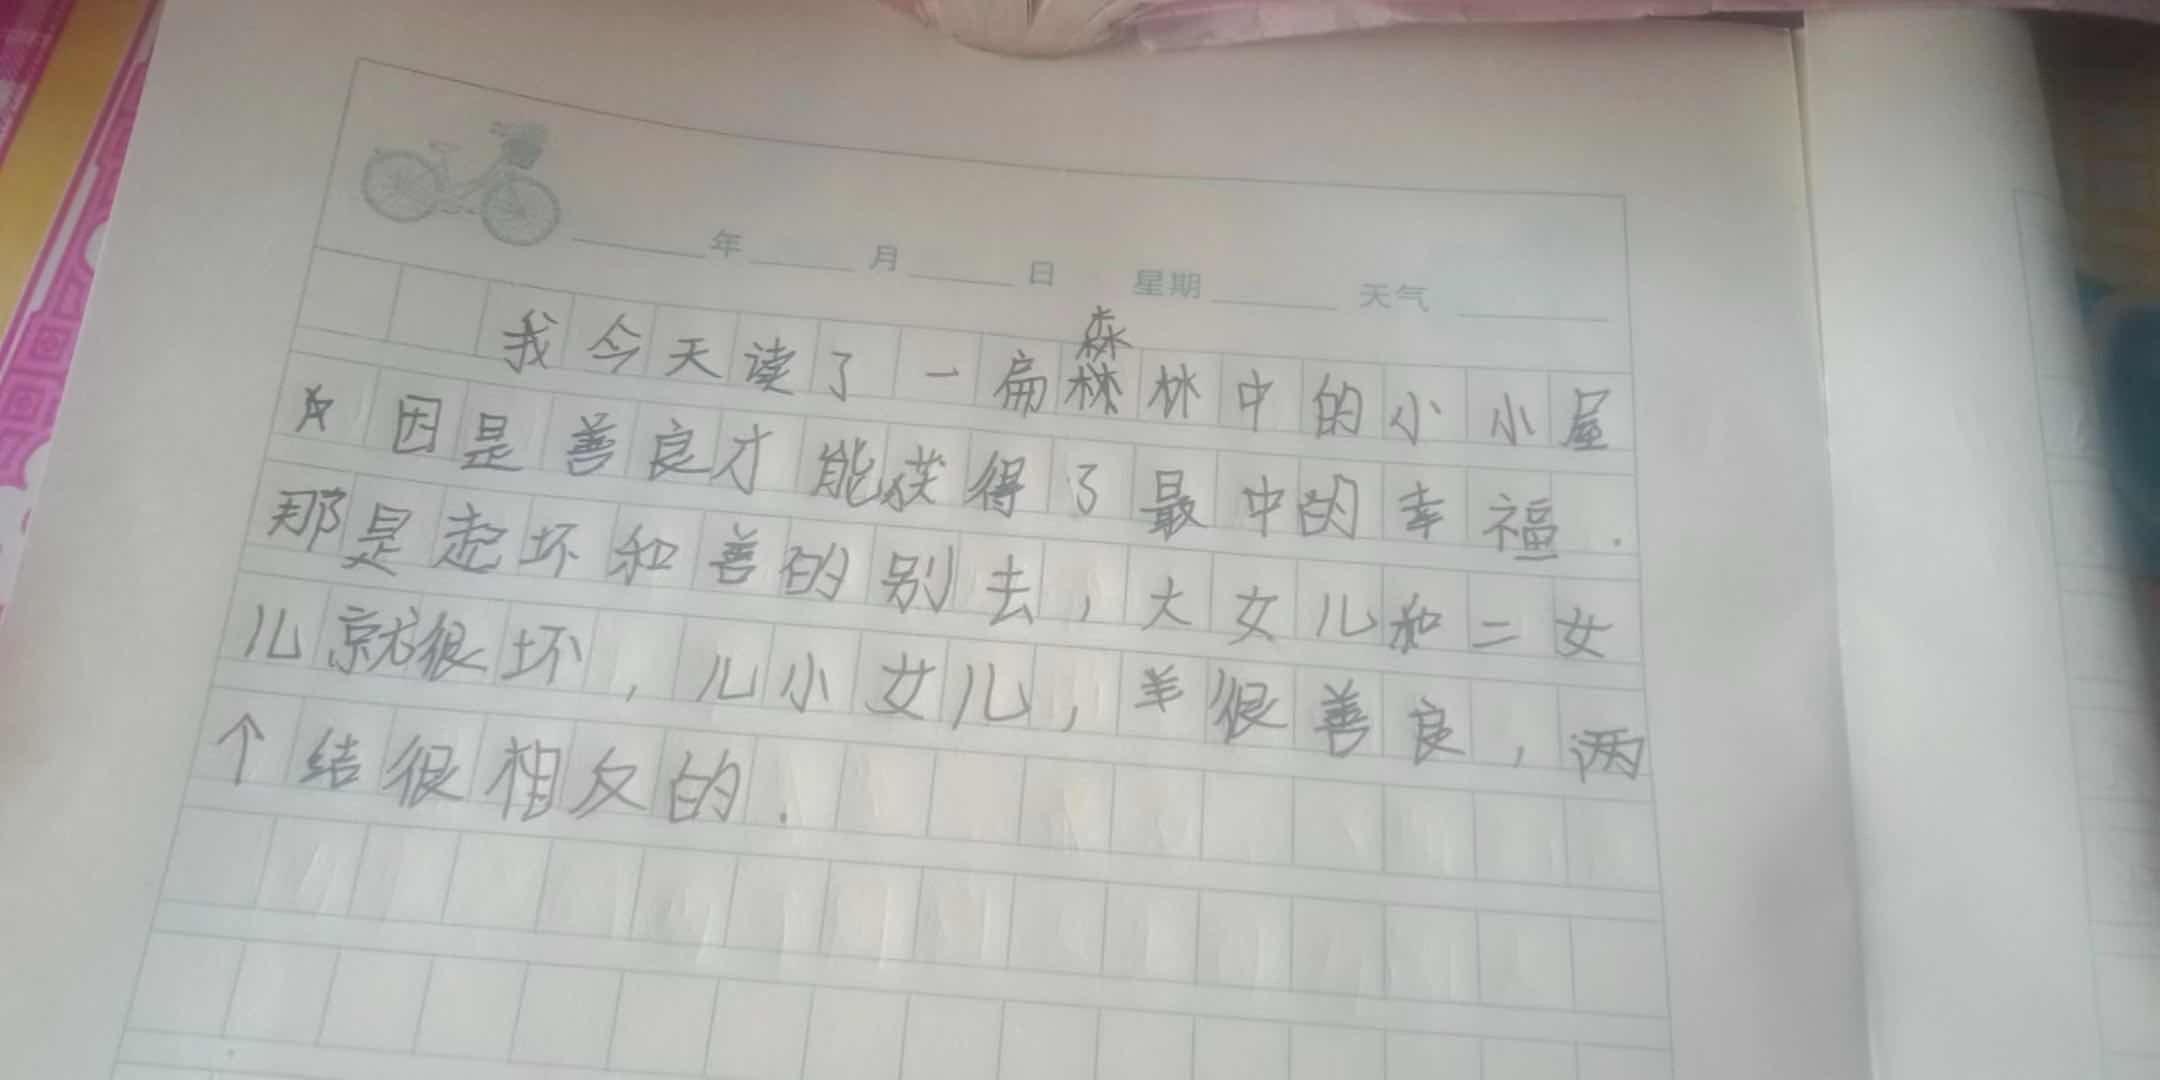 年 月 日 星期 天气
我今天读了一扁森林中的小小屋
因是善良才能获得了最中的幸福.
那是起坏和善的别去,大女儿和二女
儿就很坏,儿小女儿,羊很善良,两
个结很相反的.